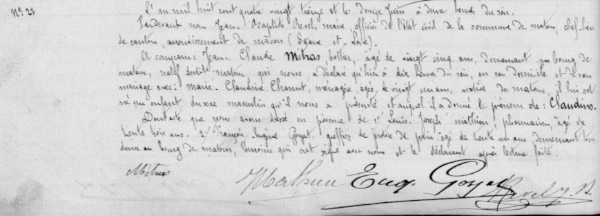 N° 27
L'an mil huit cent quatre vingt treize et le douze Juin à deux heures du soir.
Pardevant nous Jean Baptiste Revel, maire, officier de l'état civil de la commune de matour, chef-lieu
de canton, arrondissement de mâcon (Saone et Loire).
A comparu: Jean Claude Mitras âgé de vingt cinq ans, demeurant au bourg de
matour, natif dudit matour, qui nous a déclaré qu'hier à dix heures du soir, en son domicile et de son
mariage avec: marie Claudine Chanut, ménagère, âgée de vingt un ans, native de matour, il lui est
né un enfant du sexe masculin qu'il nous a présenté et auquel il a donné le prénom de: Claudius.
Dont acte que nous avons dressé en présence de 1° Louis Joseph mathieu, pharmacien, âgé de
trente trois ans. 2° François Eugène Goyat, greffier de justice de paix âgé de trente un ans demeurant tous
deux au bourg de matour, témoins qui ont signé avec nous et le déclarant après lecture faite.
Mitras Mathieu Eug. Goyat Revel J. B.